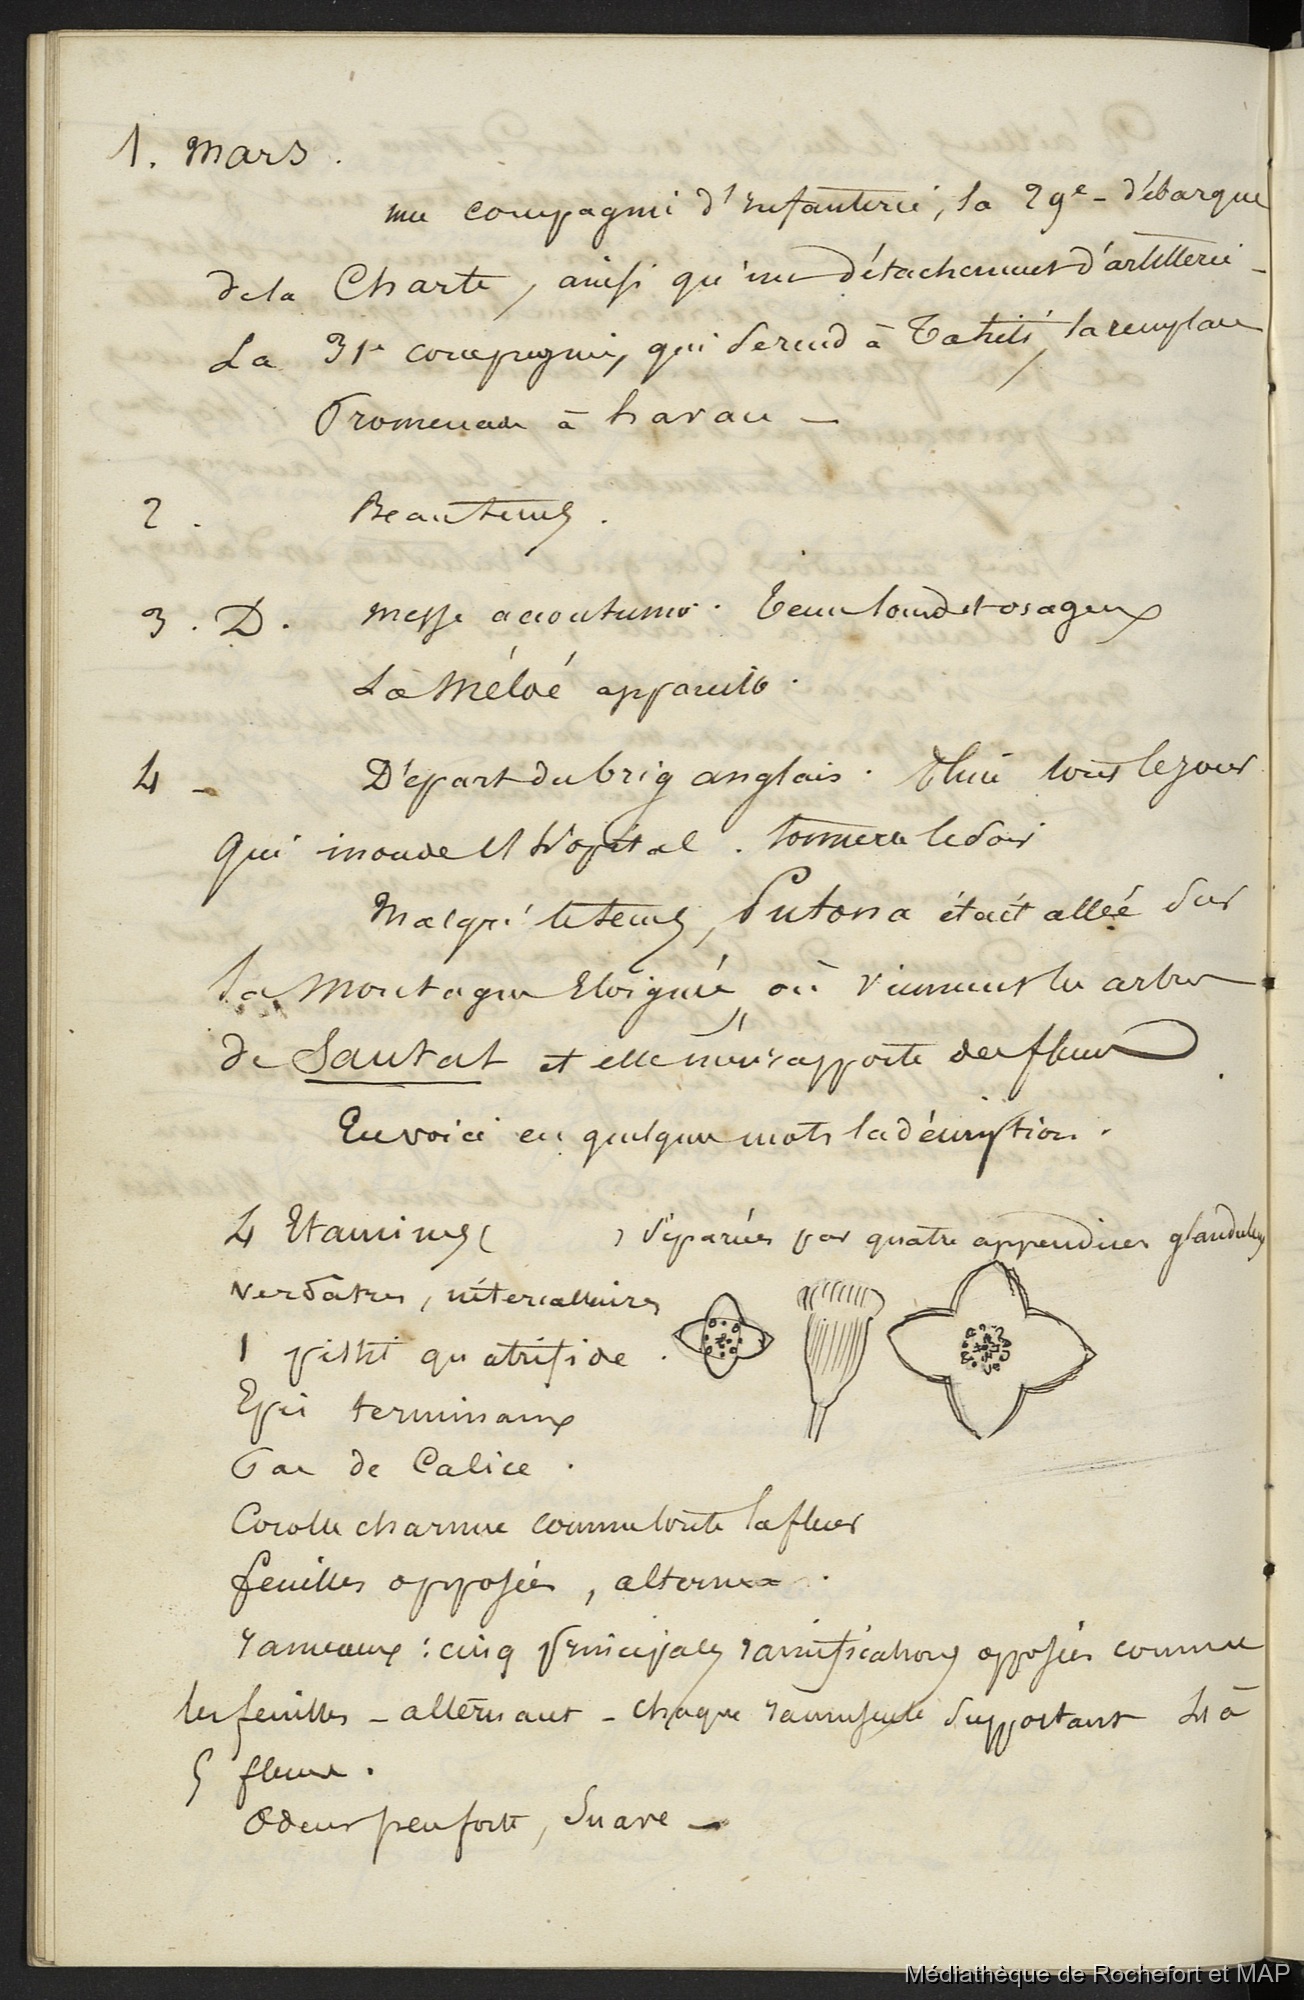 1. Mars.
une compagnie d'Infanterie, la 29e - débarque
de la Charte, ainsi qu'un détachement d'artillerie -
La 31e compagnie, qui se rend à Tahiti, la remplace
Promenade à havau -
2. Beau temps.
3. D. Messe accoutumée. Temps lourd et orageux
La Méloé appareille.
4 - Départ du brig anglais. Pluie tout le jour
qui inonde l'hôpital. tonnerre le soir
Malgré le temps, Putona était allée sur
la Montagne Eloignée où viennent les arbres
de Santal et elle m'en rapporte des fleurs.
En voici en quelques mots la description.
4 Etamines ( ) séparées par quatre appendices glanduleux
verdâtres, intercallaires
1 pistil quatrifide.
Epis terminaux
Pas de Calice.
Corolle charnue comme toute la fleur
feuilles opposées, alternes.
rameaux : cinq principales ramifications opposées comme
les feuilles - alternant - chaque ramuscule supportant 4 à
5 fleurs.
Odeur peu forte, suave -
Médiathèque de Rochefort et MAP